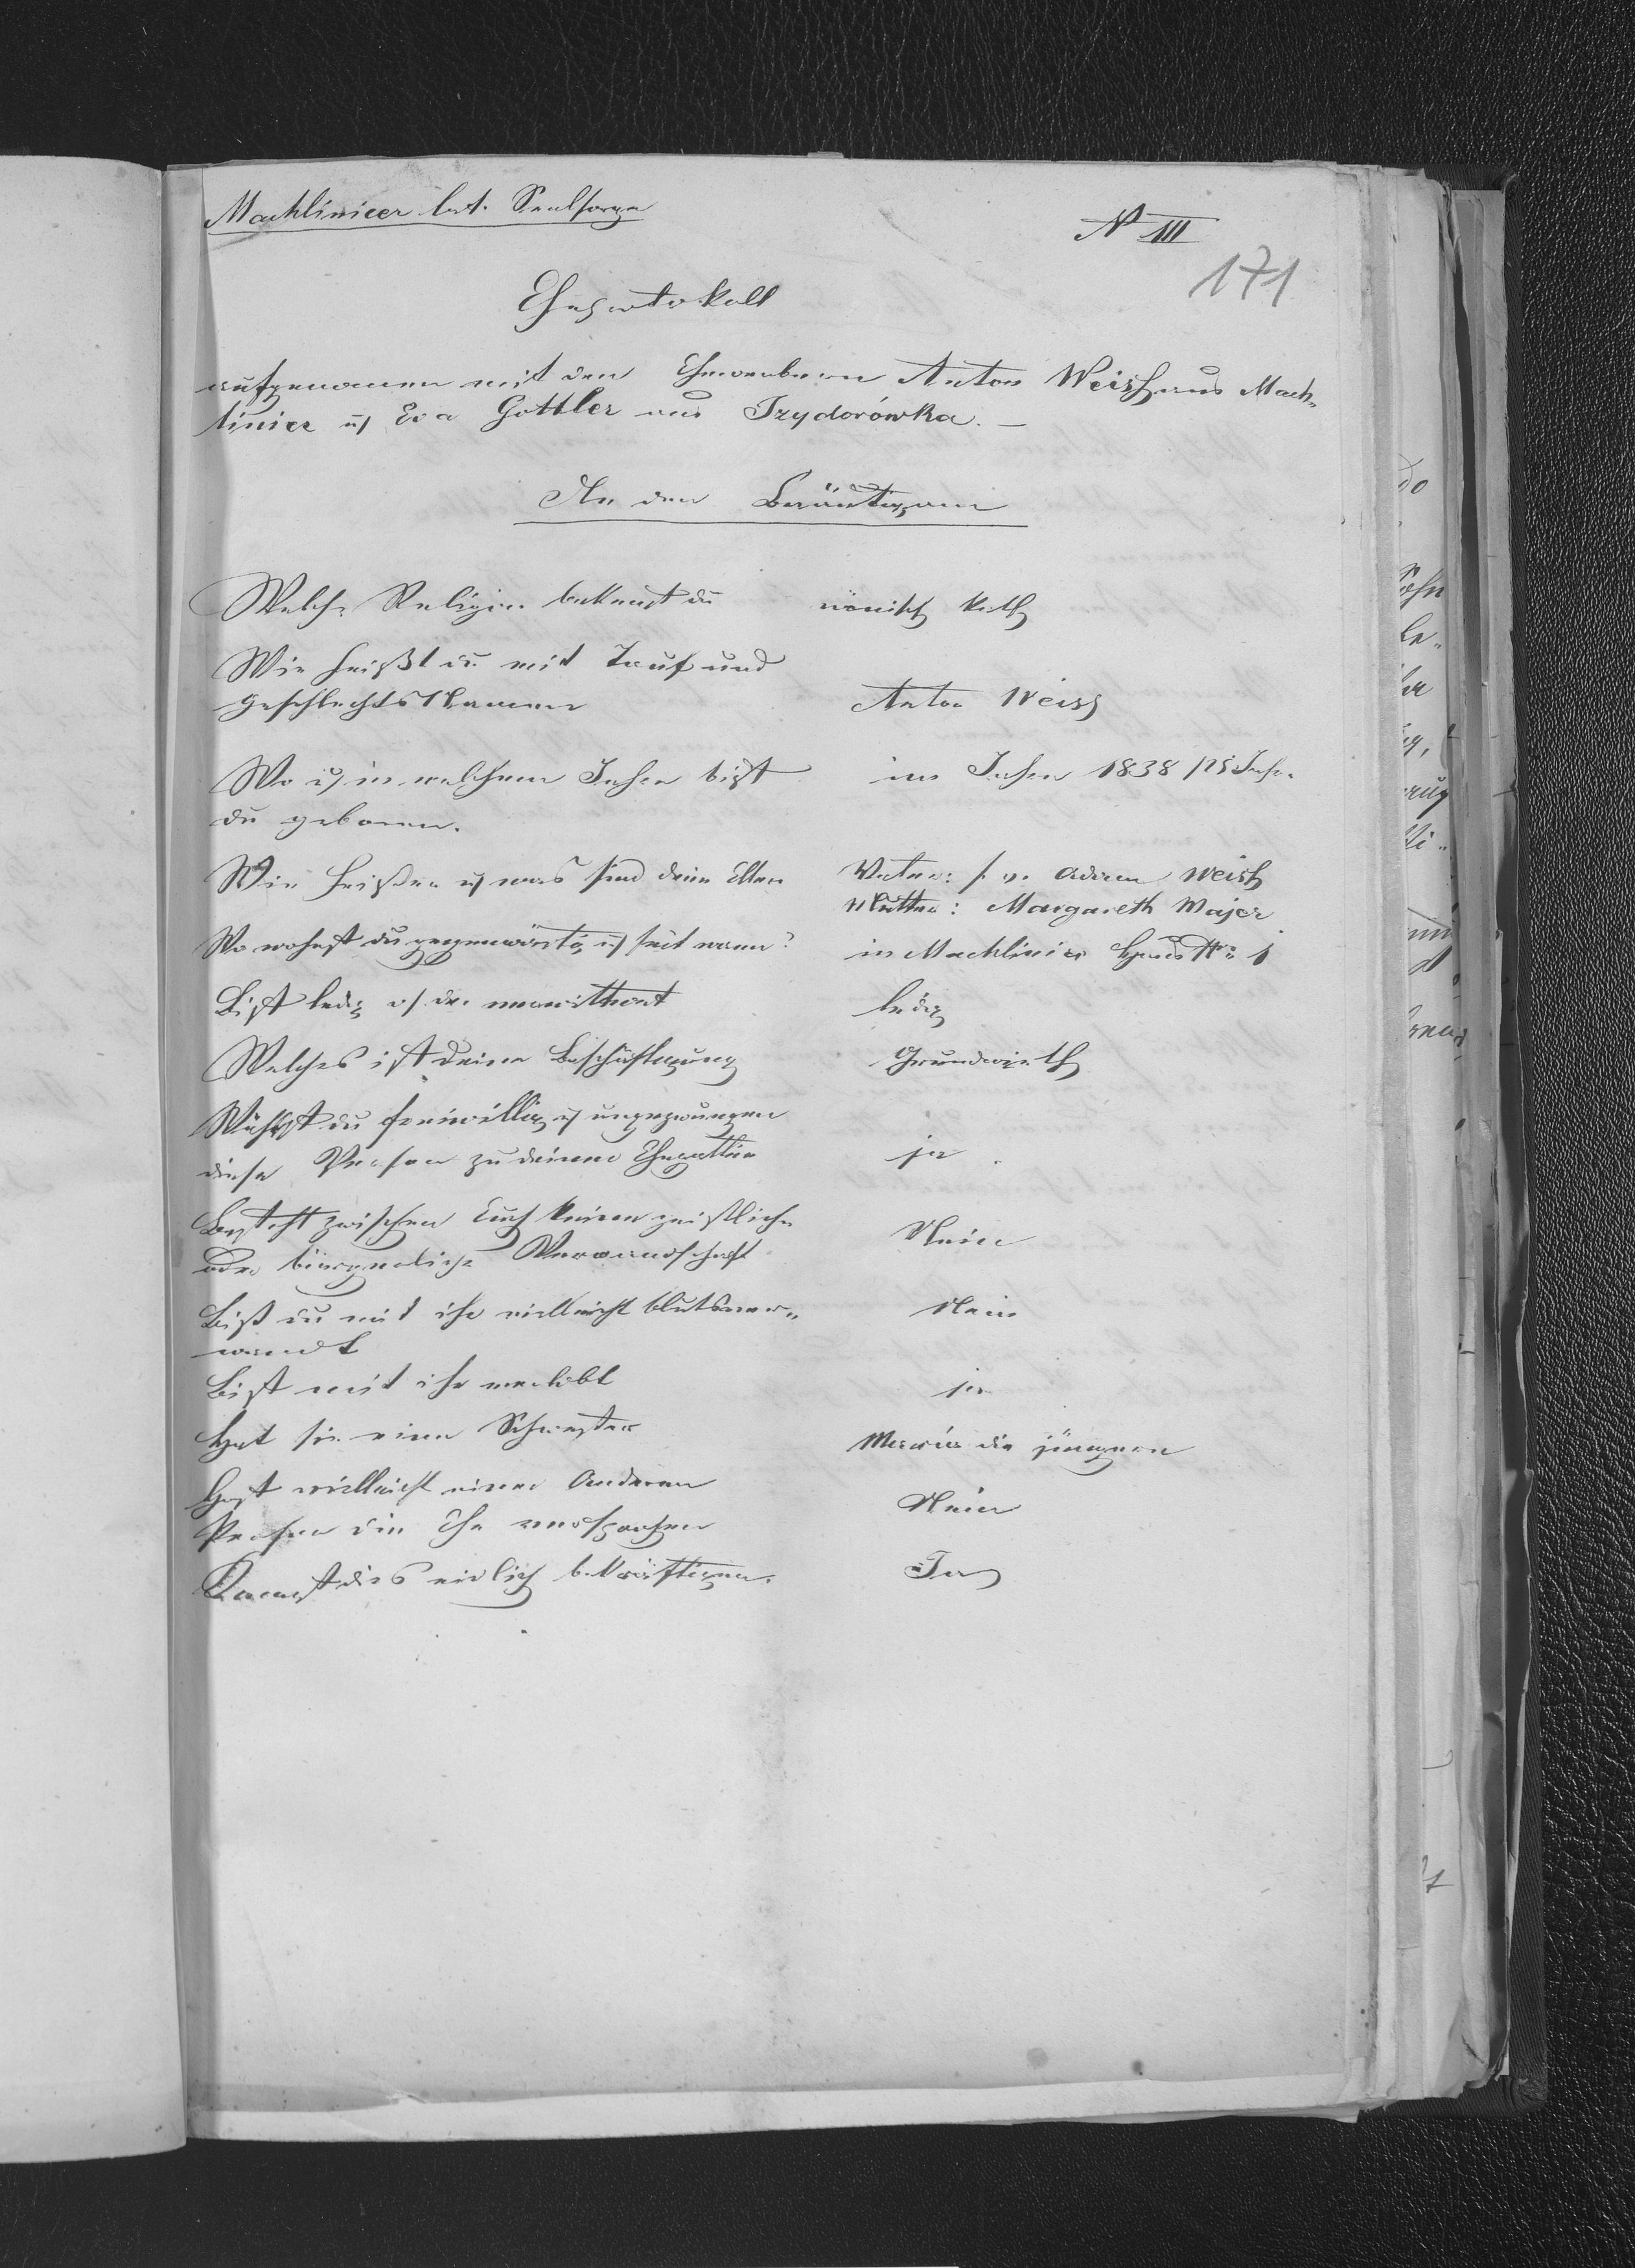 Machlinicer lat. Seelsorge
N III
171
Eheprotokoll
aufgenommen mit den Ehewerbern Anton Weish aus Mach-
linice u/ Eva Gottler aus Izydorówka. —
An den Bräutigam
Welche Religion bekennst du
römisch kath
Wie heißt du mit Tauf und
Geschlechts Namen
Anton Weiss
Wo u/ in welchem Jahre bist
du geboren.
im Jahre 1838 /25 Jahr.
Wie heißen u/ was sind deine Eltern
Vater: Adam Weish
Mutter: Margareth Majer
Wo wohnst du gegenwärtig u/ seit wann?
in Machlinice Haus N: 1
Bist ledig o/der verwittwet
ledig
Welches ist deine Beschäftigung
Grundwirth
Wählst du freiwillig u/ ungezwungen
diese Person zu deiner Ehegattin
ja.
Besteht zwischen Euch keine geistliche
oder bürgerliche Verwandschaft
Nein
Bist du mit ihr vielleicht blutsver-
wandt
Nein
Bist mit ihr verlobt
ja
Hat sie eine Schwester
Maria die jüngere
Hast vielleicht einer Anderen
Person die Ehe versprochen
Nein
Kannst dies eidlich bekräftigen.
Ja